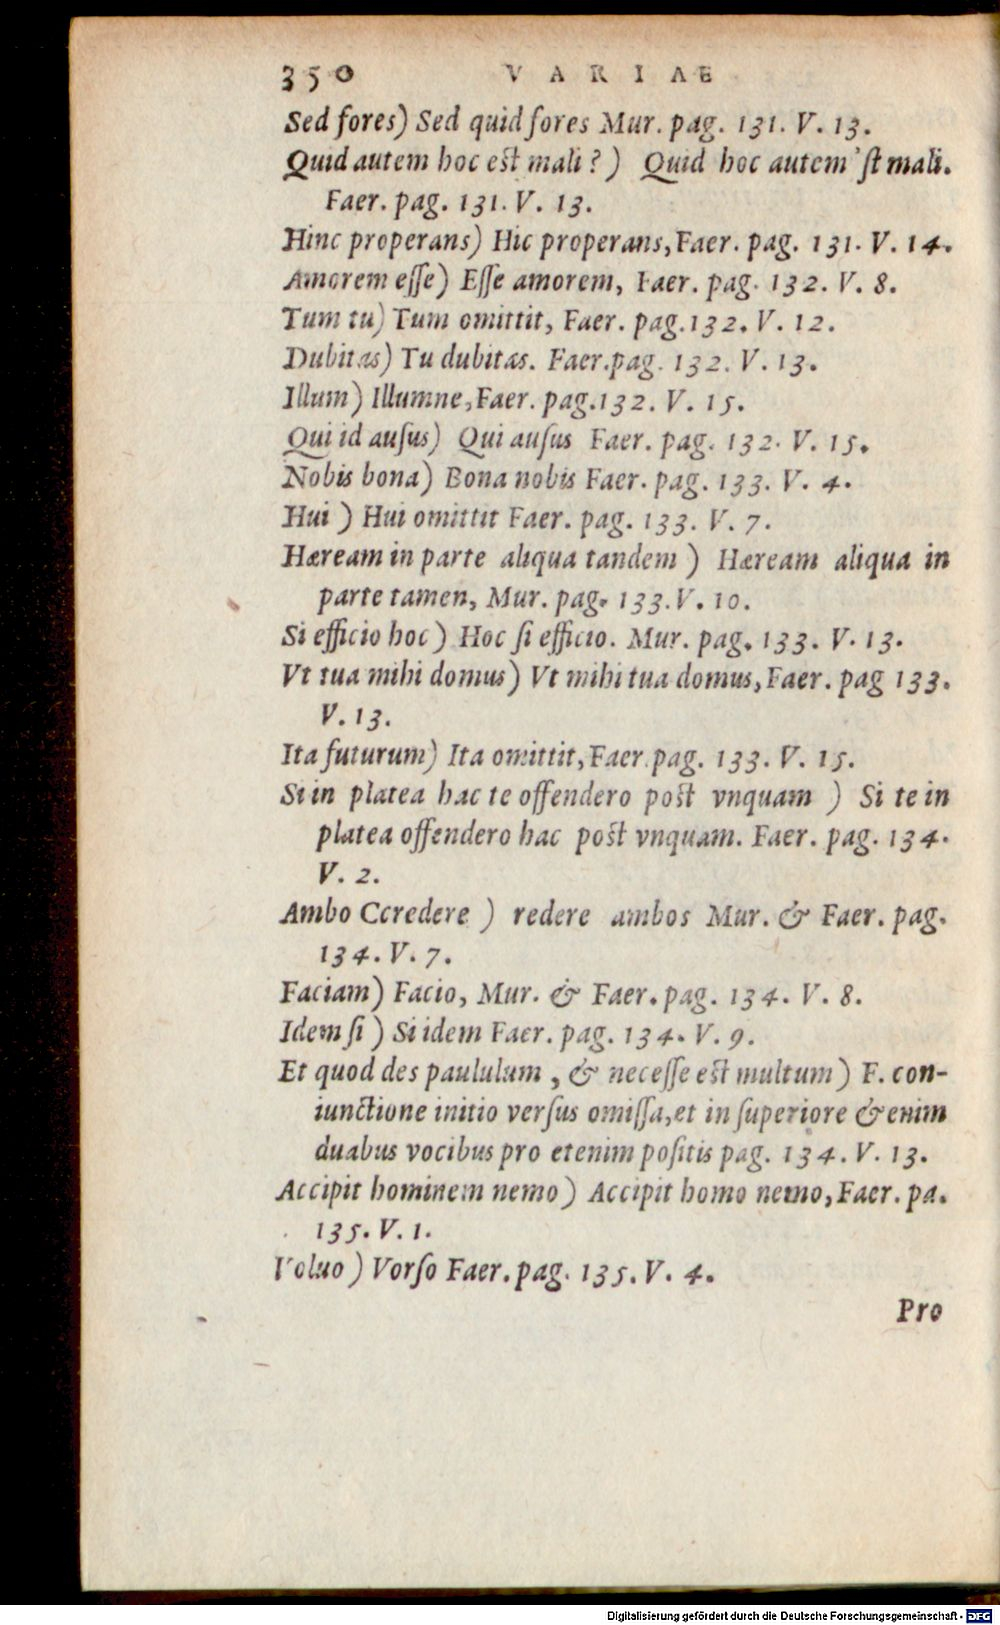 350 VARIAE
Sed fores) Sed quid fores Mur. pag. 131. V. 13.
Quid autem hoc est mali?) Quid hoc autem 'st mali.
Faer. pag. 131. V. 13.
Hinc properans) Hic properans, Faer. pag. 131. V. 14.
Amorem esse) Esse amorem, Faer. pag. 132. V. 8.
Tum tu) Tum omittit, Faer. pag. 132. V. 12.
Dubitas) Tu dubitas. Faer. pag. 132. V. 13.
Illum) Illumne, Faer. pag. 132. V. 15.
Qui id ausus) Qui ausus Faer. pag. 132. V. 15.
Nobis bona) Bona nobis Faer. pag. 133. V. 4.
Hui ) Hui omittit Faer. pag. 133. V. 7.
Hæream in parte aliqua tandem ) Hæream aliqua in
parte tamen, Mur. pag. 133. V. 10.
Si efficio hoc) Hoc si efficio. Mur. pag. 133. V. 13.
Vt tua mihi domus) Vt mihi tua domus, Faer. pag 133.
V. 13.
Ita futurum) Ita omittit, Faer. pag. 133. V. 15.
Si in platea hac te offendero post vnquam ) Si te in
platea offendero hac post vnquam. Faer. pag. 134.
V. 2.
Ambo Ccredere ) redere ambos Mur. & Faer. pag.
134. V. 7.
Faciam) Facio, Mur. & Faer. pag. 134. V. 8.
Idem si ) Si idem Faer. pag. 134. V. 9.
Et quod des paululum , & necesse est multum) F. con-
iunctione initio versus omissa, et in superiore & enim
duabus vocibus pro etenim positis pag. 134. V. 13.
Accipit hominem nemo) Accipit homo nemo, Faer. pa.
135. V. 1.
Voluo ) Vorso Faer. pag. 135. V. 4.
Pro
Digitalisierung gefördert durch die Deutsche Forschungsgemeinschaft - DFG